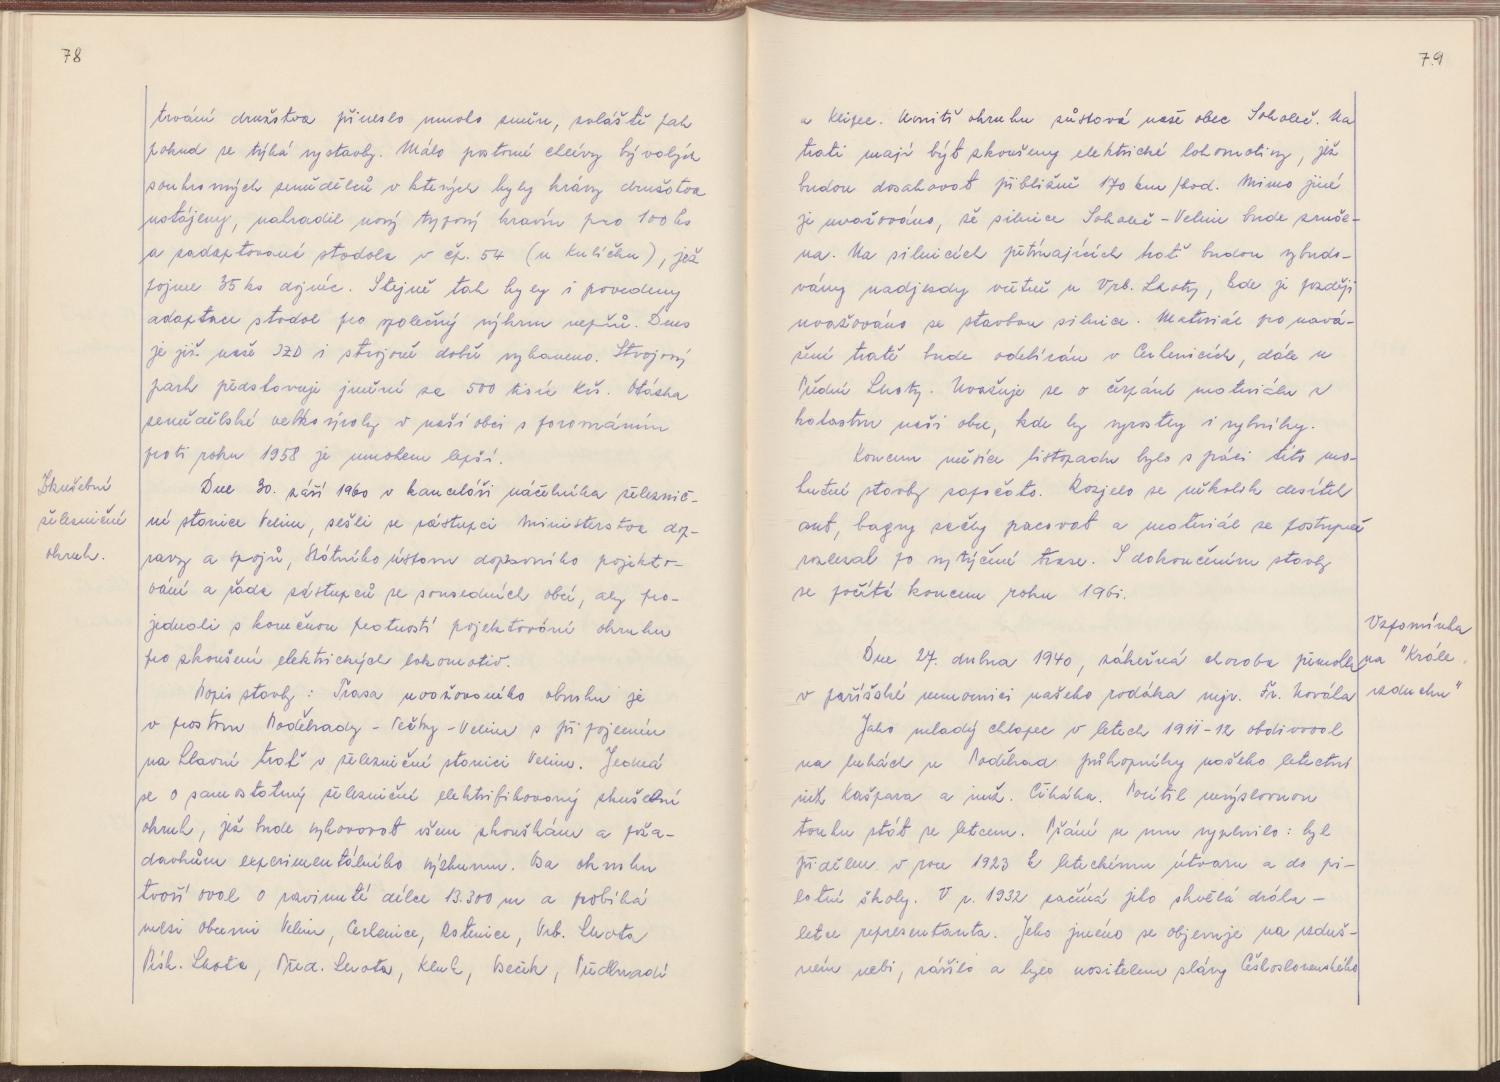 78
trvání družstva přineslo mnoho změn, zvláště pak
pokud se týká výstavby. Málo prostorné chlévy bývalých
soukromých zemědělců v kterých byly krávy družstva
ustájeny, nahradil nový typový kravín pro 100 ks
a zadaptovaná stodola v čp. 54 (u Kulíčku), jež
pojme 35 ks dojnic. Stejně tak byly i provedeny
adaptace stodol pro společný výkrm vepřů. Dnes
je již naše JZD i strojově dobře vybaveno. Strojový
park představuje jmění za 500 tisíc Kčs. Otázka
zemědělské velkovýroby v naší obci s porovnáním
proti roku 1958 je mnohem lepší.
Zkušební
železniční
okruh.
Dne 30. září 1960 v kanceláři náčelníka železnič-
ní stanice Velim, sešli se zástupci Ministerstva dop-
ravy a spojů, Státního ústavu dopravního projekto-
vání a řada zástupců ze sousedních obcí, aby pro-
jednali s konečnou platností projektování okruhu
pro zkoušení elektrických lokomotiv.
Popis stavby: Trasa uvažovaného okruhu je
v prostoru Poděbrady - Pečky - Velim s připojením
na hlavní trať v železniční stanici Velim. Jedná
se o samostatný železniční elektrifikovaný zkušební
okruh, jež bude vyhovovat všem zkouškám a poža-
davkům experimentálního výzkumu. Osa okruhu
tvoří ovál o rozvinuté délce 13.300 m a probíhá
mezi obcemi Velim, Cerhenice, Ratenice, Vrb. Lhota
Písk. Lhota, Před. Lhota, Kluk, Oseček, Předhradí
79
a Klipec. Uvnitř okruhu zůstává naše obec Sokoleč. Na
trati mají být zkoušeny elektrické lokomotivy, jež
budou dosahovat přibližně 170 km/hod. Mimo jiné
je uvažováno, že silnice Sokoleč - Velim bude zruše-
na. Na silnicích protínajících trať budou vybudo-
vány nadjezdy včetně u Vrb. Lhoty, kde je později
uvažováno se stavbou silnice. Materiál pro navá-
žení tratě bude odebírán v Cerhenicích, dále u
Přední Lhoty. Uvažuje se o čerpání materiálu z
katastru naší obce, kde by vyrostly i rybníky.
Koncem měsíce listopadu bylo s prací této mo-
hutné stavby započato. Rozjelo se několik desítek
aut, bagry začly pracovat a materiál se postupně
rozlézal po vytýčené trase. S dokončením stavby
se počítá koncem roku 1961.
Vzpomínka
na "Krále
vzduchu"
Dne 27. dubna 1940, zákeřná choroba přemohla
v pařížské nemocnici našeho rodáka mjr. Fr. Nováka
Jako mladý chlapec v letech 1911-12 obdivoval
na lukách u Poděbrad průkopníky našeho letectví
inž Kašpara a inž. Čiháka. Pocítil nevýslovnou
touhu stát se letcem. Přání se mu vyplnilo: byl
přidělen v roce 1923 k leteckému útvaru a do pi-
lotní školy. V r. 1932 začíná jeho skvělá dráha -
letce representanta. Jeho jméno se objevuje na vzduš-
ném nebi, zářilo a bylo nositelem slávy Československého